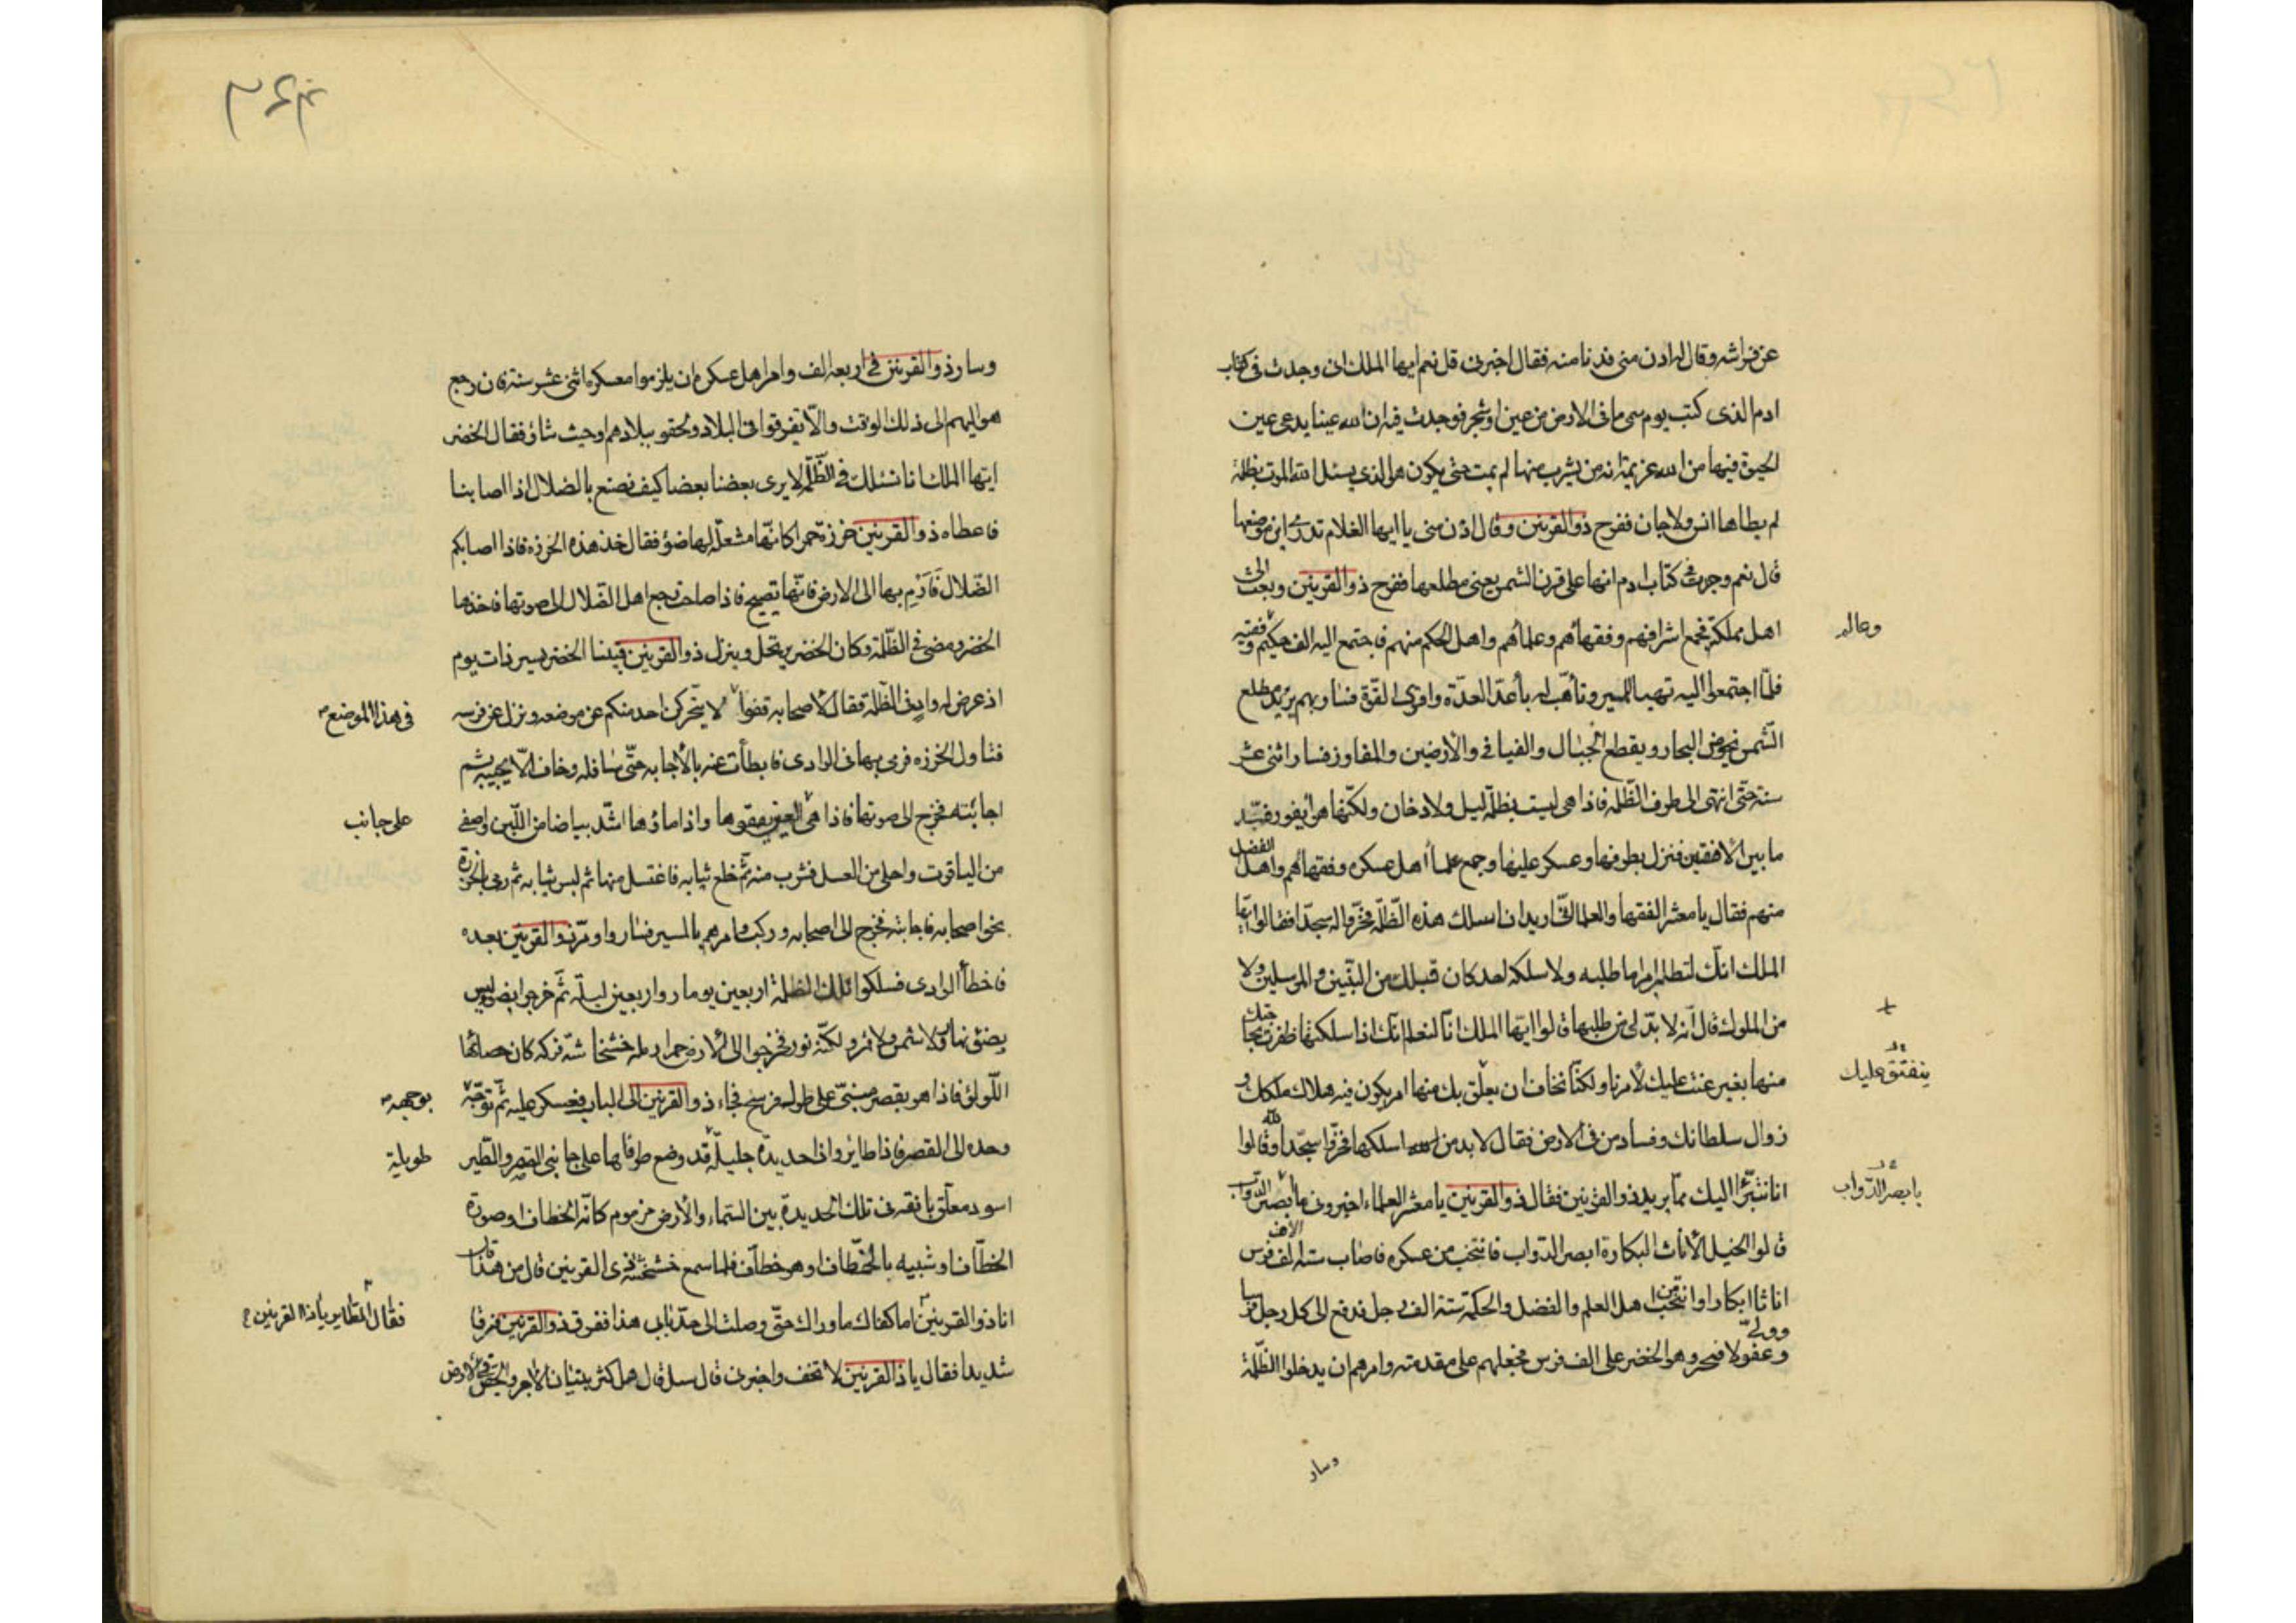 عن فراشه وقال له ادن منى فدنا منه فقال اخبرنى قل نعم ايها الملك انى وجدت فى كتاب
ادم الذى كتب يوم سمى ما فى الارض من عين او شجر فوجدت فيه ان لله عينا يدعى عين
الحيوة فيها من الله عزيمة انه من يشرب منها لم يمت حتى يكون هو الذى يسئل الله الموت بظلمة
لم يطاها انس ولا جان ففرح ذو القرنين وقال ادن منى يا ايها الغلام تدرى اين موضعها
قال نعم وجدت فى كتاب ادم انها على قرن الشمس يعنى مطلعها ففرح ذو القرنين وبعث الى
اهل مملكته فجمع اشرافهم وفقهائهم وعلمائهم واهل الحكم منهم فاجتمع اليه الف حكيم وفقيه
وعالم
فلما اجتمعوا اليه تهيا للمسير وتأهب له بأعد العدة واقوى القوة فسار بهم يريد مطلع
الشمس يخوض البحار ويقطع الجبال والفيافى والأرضين والمفاوز فسار اثنى عشر
سنة حتى انتهى الى طرف الظلمة فاذا هى ليست بظلمة ليل ولا دخان ولكنها هواء يفور فسد
ما بين الافقين فنزل بطرفها وعسكر عليها وجمع علماء اهل عسكره وفقهائهم واهل الفضل
منهم فقال يا معشر الفقها والعلما انى اريد ان اسلك هذه الظلمة فخروا له سجدا فقالوا ايها
الملك انك لتطلب امرا ما طلبه ولا سلكه احد كان قبلك من النبيين والمرسلين ولا
من الملوك قال انه لا بد لى من طلبها قالوا ايها الملك انا لنعلم انك اذا سلكتها ظفرت بحاجتك
منها بغير عنت عليك لأمرنا ولكنا نخاف ان يعلق بك منها امر يكون فيه هلاك ملكك و
ينفتق عليك
زوال سلطانك وفساد من فى الارض فقال لا بد من ان اسلكها فخروا سجدا لله وقالوا
انا نتبرأ اليك مما يريد ذو القرنين فقال ذو القرنين يا معشر العلماء اخبرونى ما ابصر الدواب
بابصر الدواب
قالوا الخيل الأناث البكارة ابصر الدواب فانتخب من عسكره فاصاب ستة الاف فرس
اناثا ابكارا وانتخب من اهل العلم والفضل والحكمة ستة الف رجل فدفع الى كل رجل فرسا
وولى
وعقد لا فسحر وهو الخضر على الف فرس فجعلهم على مقدمته وامرهم ان يدخلوا الظلمة
وسار
وسار ذو القرنين فى اربعة الف وامر اهل عسكره ان يلزموا معسكره اثنى عشر سنة فان رجع
هو اليهم الى ذلك الوقت والا تفرقوا فى البلاد ولحقو ببلادهم او حيث شاؤ فقال الخضر
ايتها الملك انا نسلك فى الظلمة لا يرى بعضنا بعضا كيف نصنع بالضلال اذا اصابنا
فاعطاه ذو القرنين خرزة حمرا كانها مشعلة لها ضؤ فقال خذ هذه الخرزه فاذا اصابكم
الضلال فارم بها الى الارض فانها تصيح فاذا صاحت رجع اهل الضلال الى صوتها فاخذها
الخضر ومضى فى الظلمة وكان الخضر يرتحل وينزل ذو القرنين فبينا الخضر يسير ذات يوم
اذ عرض له واد فى الظلمة فقال لأصحابه قفوا لا يتحركن احد منكم عن موضعه ونزل عن فرسه
فى هذا الموضع
فتناول الخرزه فرمى بها فى الوادى فابطأت عنه بالأجابه حتى ساء ظنه وخاف الا يجيبه ثم
اجابته فخرج الى صوتها فاذا هى العين يقفوها واذا ماؤها اشد بياضا من اللبن واصفى
على جانب
من الياقوت واحلى من العسل فشرب منه ثم خلع ثيابه فاغتسل منها ثم لبس ثيابه ثم رمى بالخرزة
نحوا صحابه فاجابته فخرج الى اصحابه وركب وامرهم بالمسير فساروا ومر ذو القرنين بعده
فاخطأ الوادى فسلكوا تلك الظلمة اربعين يوما واربعين ليلة ثم خرجوا بضوء ليس
بضؤ نهار ولا شمس ولا قمر ولكنه نور فخرجوا الى الأرض حمرا رملة خشخاشة فركه كان حصائها
اللؤلؤ فاذا هو بقصر مبنى على طوله فرسخ فجاء ذو القرنين الى الباب فعسكر عليه ثم توجه
بوجهه
وحده الى القصر فاذا طاير واذا حديدة جليلة قد وضع طرفاها على جانبى القصر والطير
طويلة
اسود معلق بانفه فى تلك الحديدة بين السماء والأرض مزموم كانه الخطاف او صورة
الخطاف او شبيه بالخطاف او هو خطاف فلما سمع خشخشة ذى القرنين قال من هذا قال
انا ذو القرنين اما كفاك ما وراك حتى وصلت الى حد بابى هذا ففرق ذو القرنين فرقا
فقال الطاير يا ذا القرنين
شديدا فقال يا ذا القرنين لا تخف واخبرنى قال سل قال هل كثر بنيان الأجر والجص فى الارض